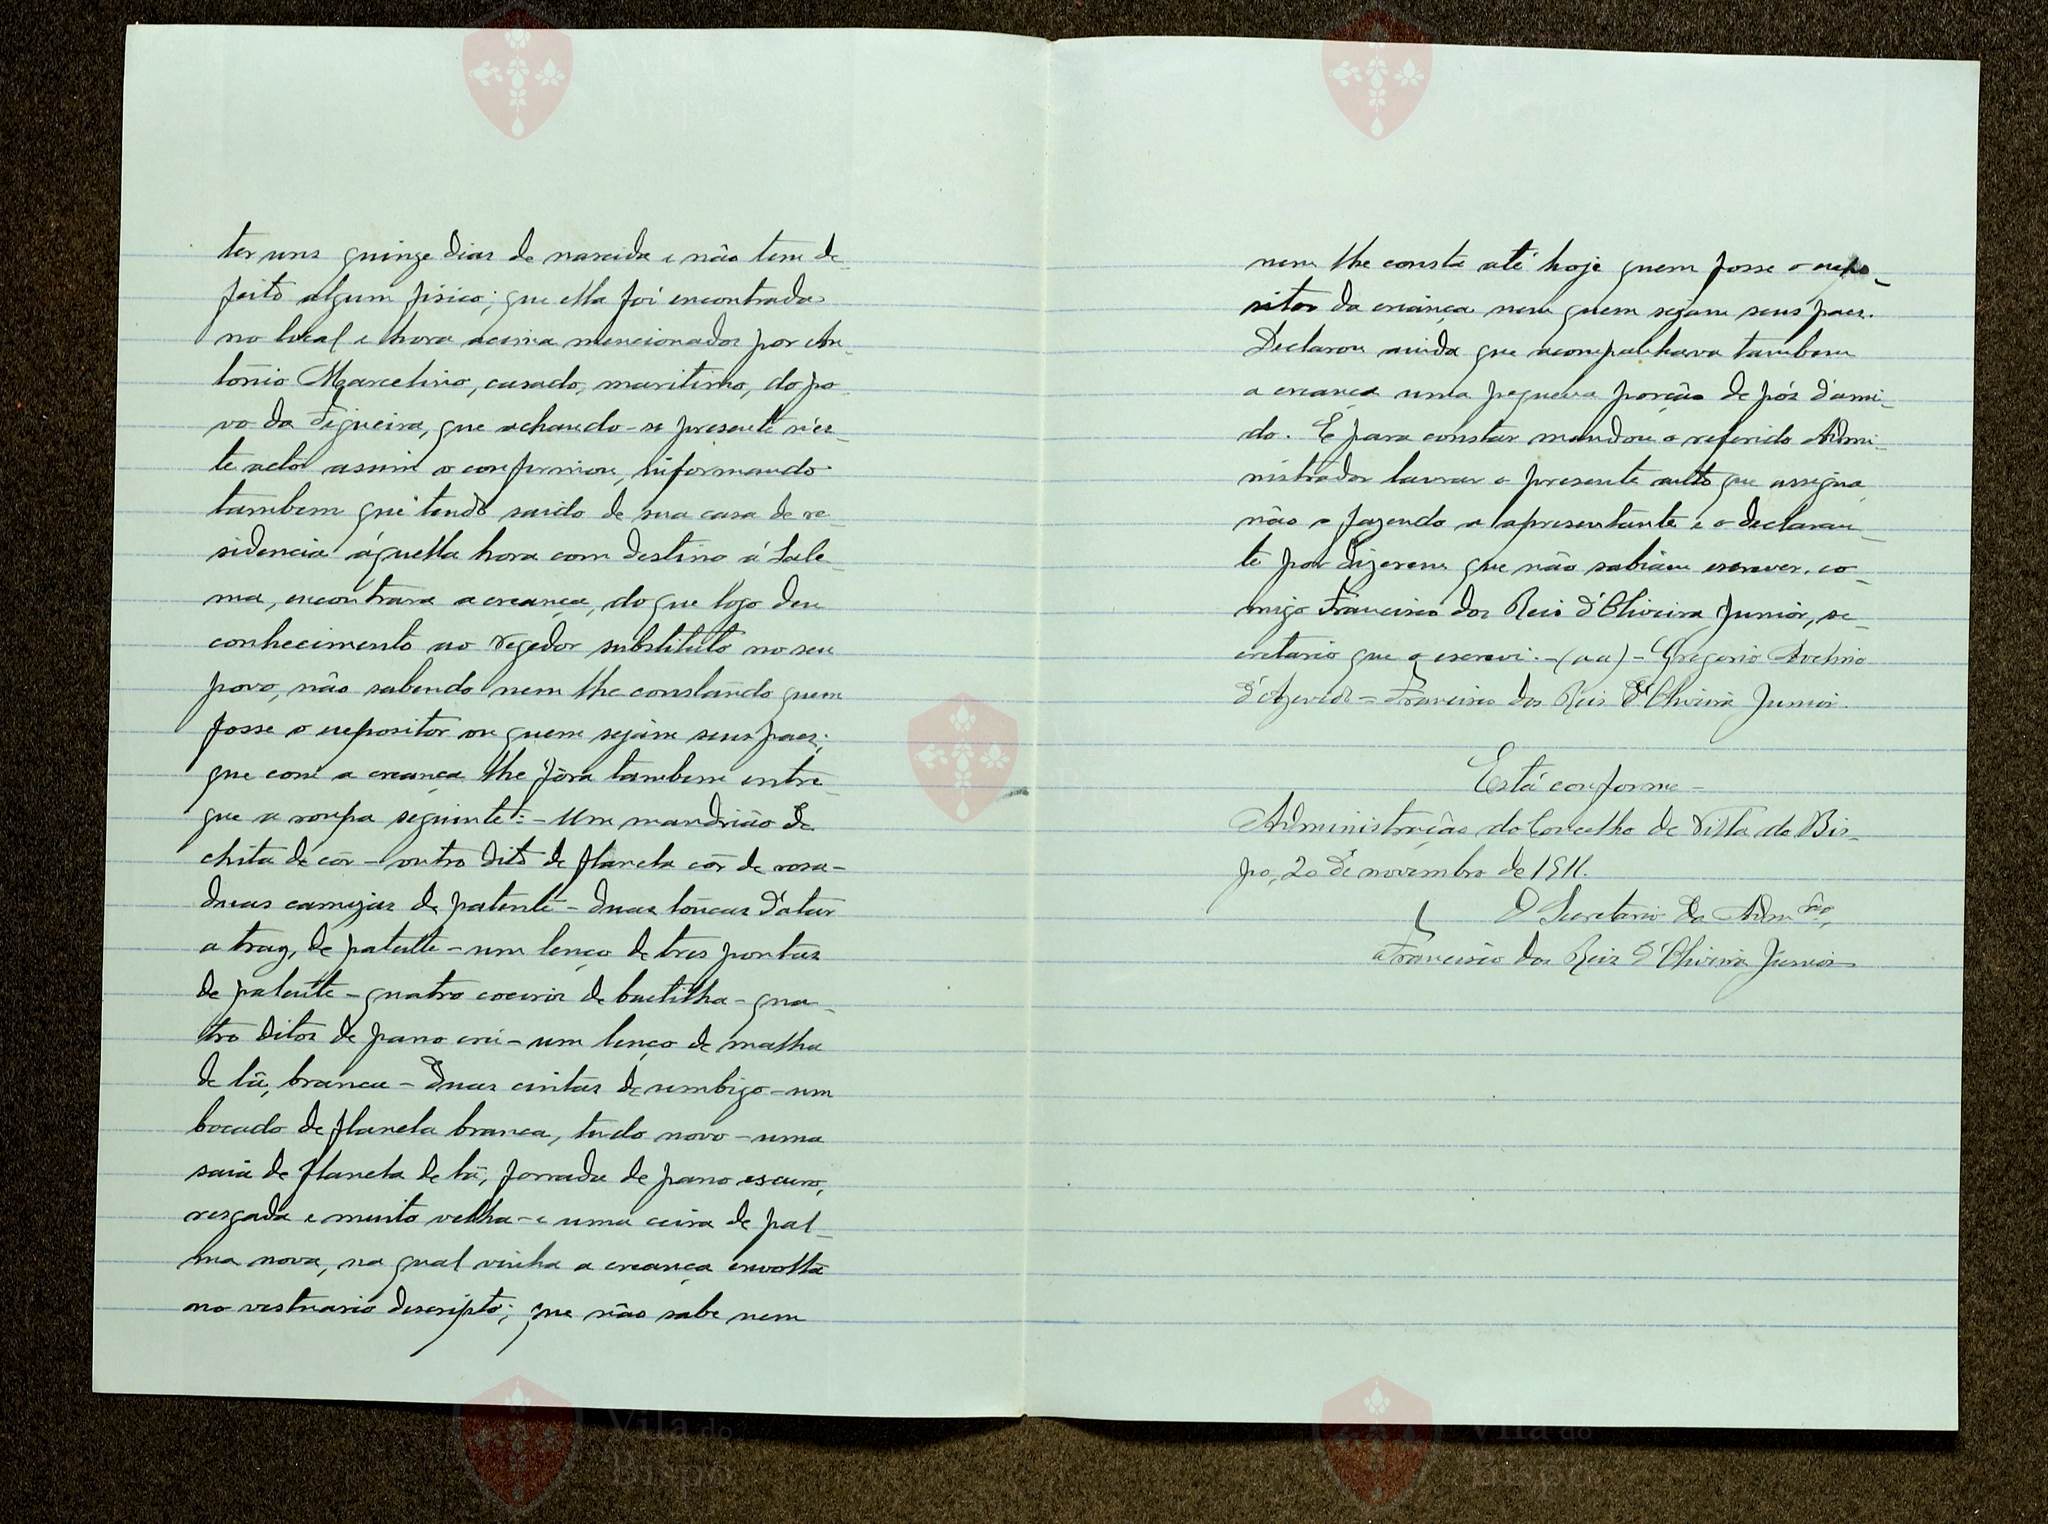 ter uns quinze dias de nascida e não tem de-
feito algum fisico; que ella foi encontrada
no local e hora acima mencionados por An-
tónio Marcelino, casado, maritimo, do po-
vo da Figueira, que achando-se presente n'es-
te acto assim o confirmou, informando
tambem que tendo saido de sua casa de re-
sidencia áquella hora com destino á Sale-
ma, encontrara a creança, do que logo deu
conhecimento ao regedor substituto no seu
povo, não sabendo nem lhe constando quem
fosse o expositor ou quem sejam seus paes;
que com a creança lhe fôra tambem entre-
gue a roupa seguinte: - Um mandrião de
chita de côr - outro dito de flanela côr de rosa -
duas camizas de patente - duas toucas d'atar
a traz, de patente - um lenço de tres pontas
de patente - quatro coeiros de baetilha - qua-
tro ditos de pano crú - um lenço de malha
de lã, branca - duas cintas de umbigo - um
bocado de flanela branca, tudo novo - uma
saia de flanela de lã, forrada de pano escuro,
rasgada e muito velha - e uma ceira de pal-
ma nova, na qual vinha a creança envolta
no vestuario descripto; que não sabe nem
nem lhe consta até hoje quem fosse o expo-
sitor da creança nem quem sejam seus paes.
Declarou ainda que acompanhava tambem
a creança uma pequena porção de pós d'ami-
do. E para constar mandou o referido Admi-
nistrador lavrar o presente auto que assigna,
não o fazendo a apresentante e o declaran-
te por dizerem que não sabiam escrever, co-
migo Francisco dos Reis d'Oliveira Junior, se-
cretario que o escrevi. - (aa) - Gregorio Avelino
d'Azevedo = Francisco dos Reis d'Oliveira Junior.
Está conforme -
Administração do Concelho de Villa do Bis-
po, 20 de novembro de 1911.
O Secretario da Adm.ção,
Francisco dos Reis d'Oliveira Junior
Vila do
Bispo
Vila do
Bispo